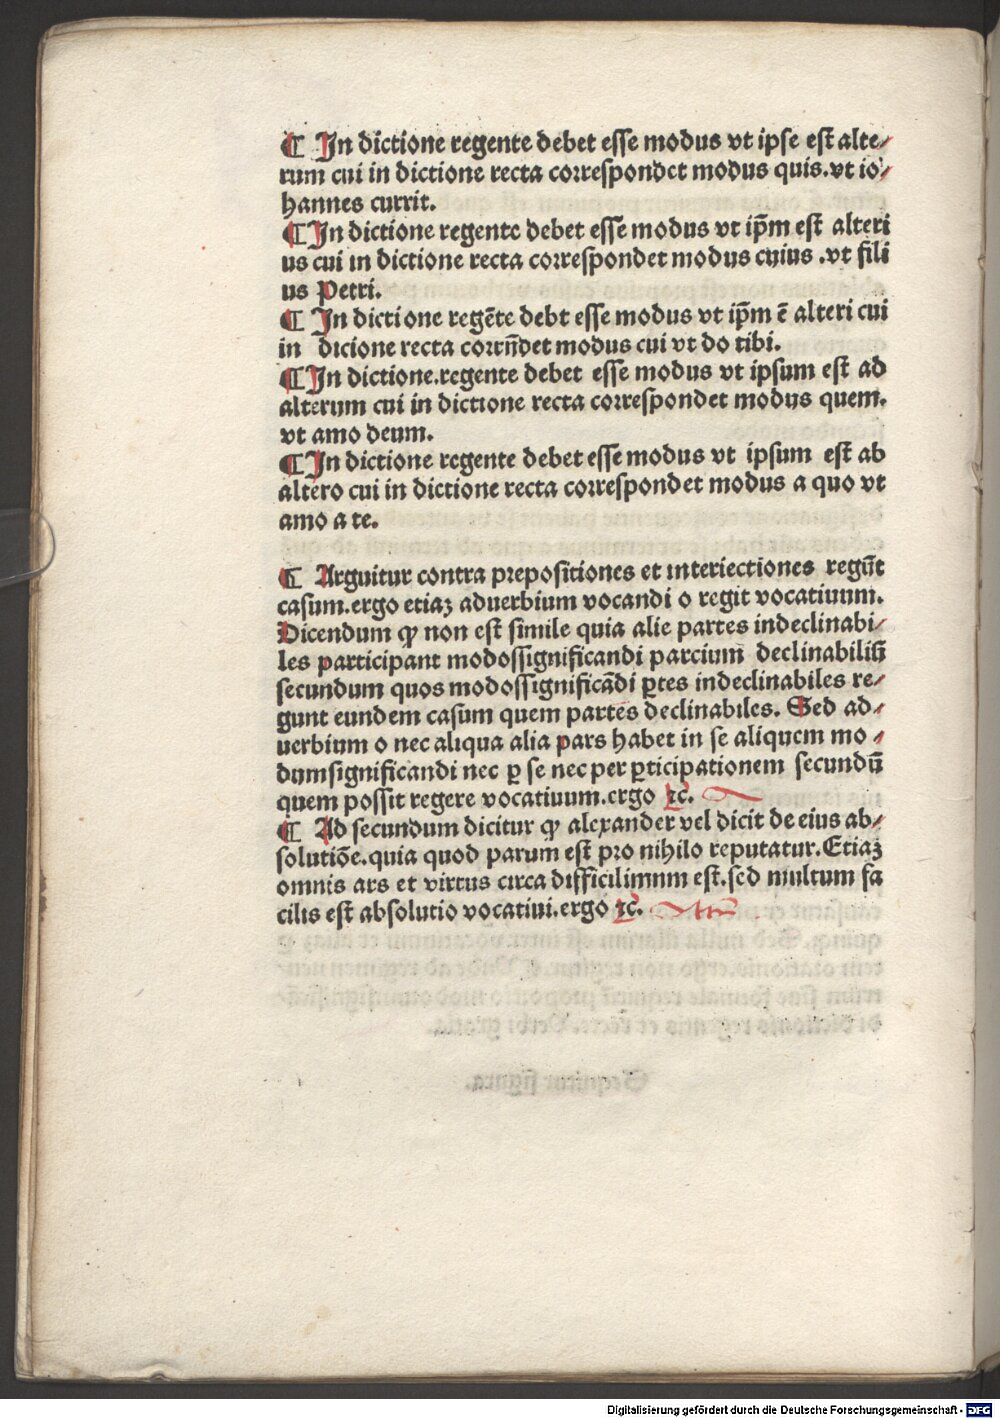 ¶ In dictione regente debet esse modus vt ipse est alte⸗
rum cui in dictione recta correspondet modus quis.vt io⸗
hannes currit.
¶ In dictione regente debet esse modus vt ip̄m est alteri
us cui in dictione recta correspondet modus cuius .vt fili
us Petri.
¶ In dictione regēte debt esse modus vt ip̄m ē alteri cui
in dicione recta corrn̄det modus cui vt do tibi.
¶ In dictione.regente debet esse modus vt ipsum est ad
alterum cui in dictione recta correspondet modus quem.
vt amo deum.
¶ In dictione regente debet esse modus vt ipsum est ab
altero cui in dictione recta correspondet modus a quo vt
amo a te.
¶ Arguitur contra prepositiones et interiectiones regūt
casum.ergo etiaꝫ aduerbium vocandi o regit vocatiuum.
Dicendum ꝙ non est simile quia alie partes indeclinabi⸗
les participant modossignificandi parcium declinabiliū
secundum quos modossignificādi ꝑtes indeclinabiles re⸗
gunt eundem casum quem partes declinabiles. Sed ad⸗
uerbium o nec aliqua alia pars habet in se aliquem mo⸗
dumsignificandi nec ꝑ se nec per ꝑticipationem secundū
quem possit regere vocatiuum.ergo ⁊c.
¶ Ad secundum dicitur ꝙ alexander vel dicit de eius ab⸗
solutiōe.quia quod parum est pro nihilo reputatur.Etiaꝫ
omnis ars et virtus circa difficilimum est.sed multum fa
cilis est absolutio vocatiui.ergo ⁊c.
Digitalisierung gefördert durch die Deutsche Forschungsgemeinschaft - DFG